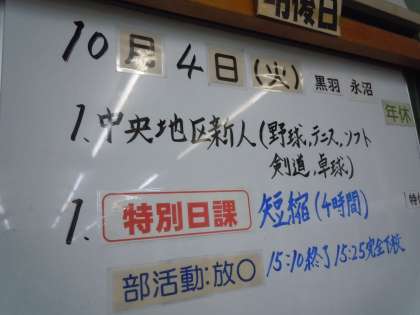 明後日
10月4日(火) 黒羽 永沼
年休
1、中央地区新人(野球,テニス,ソフト
剣道,卓球)
1、特別日課 短縮(4時間)
特
部活動:放○ 15:10終了 15:25完全下校